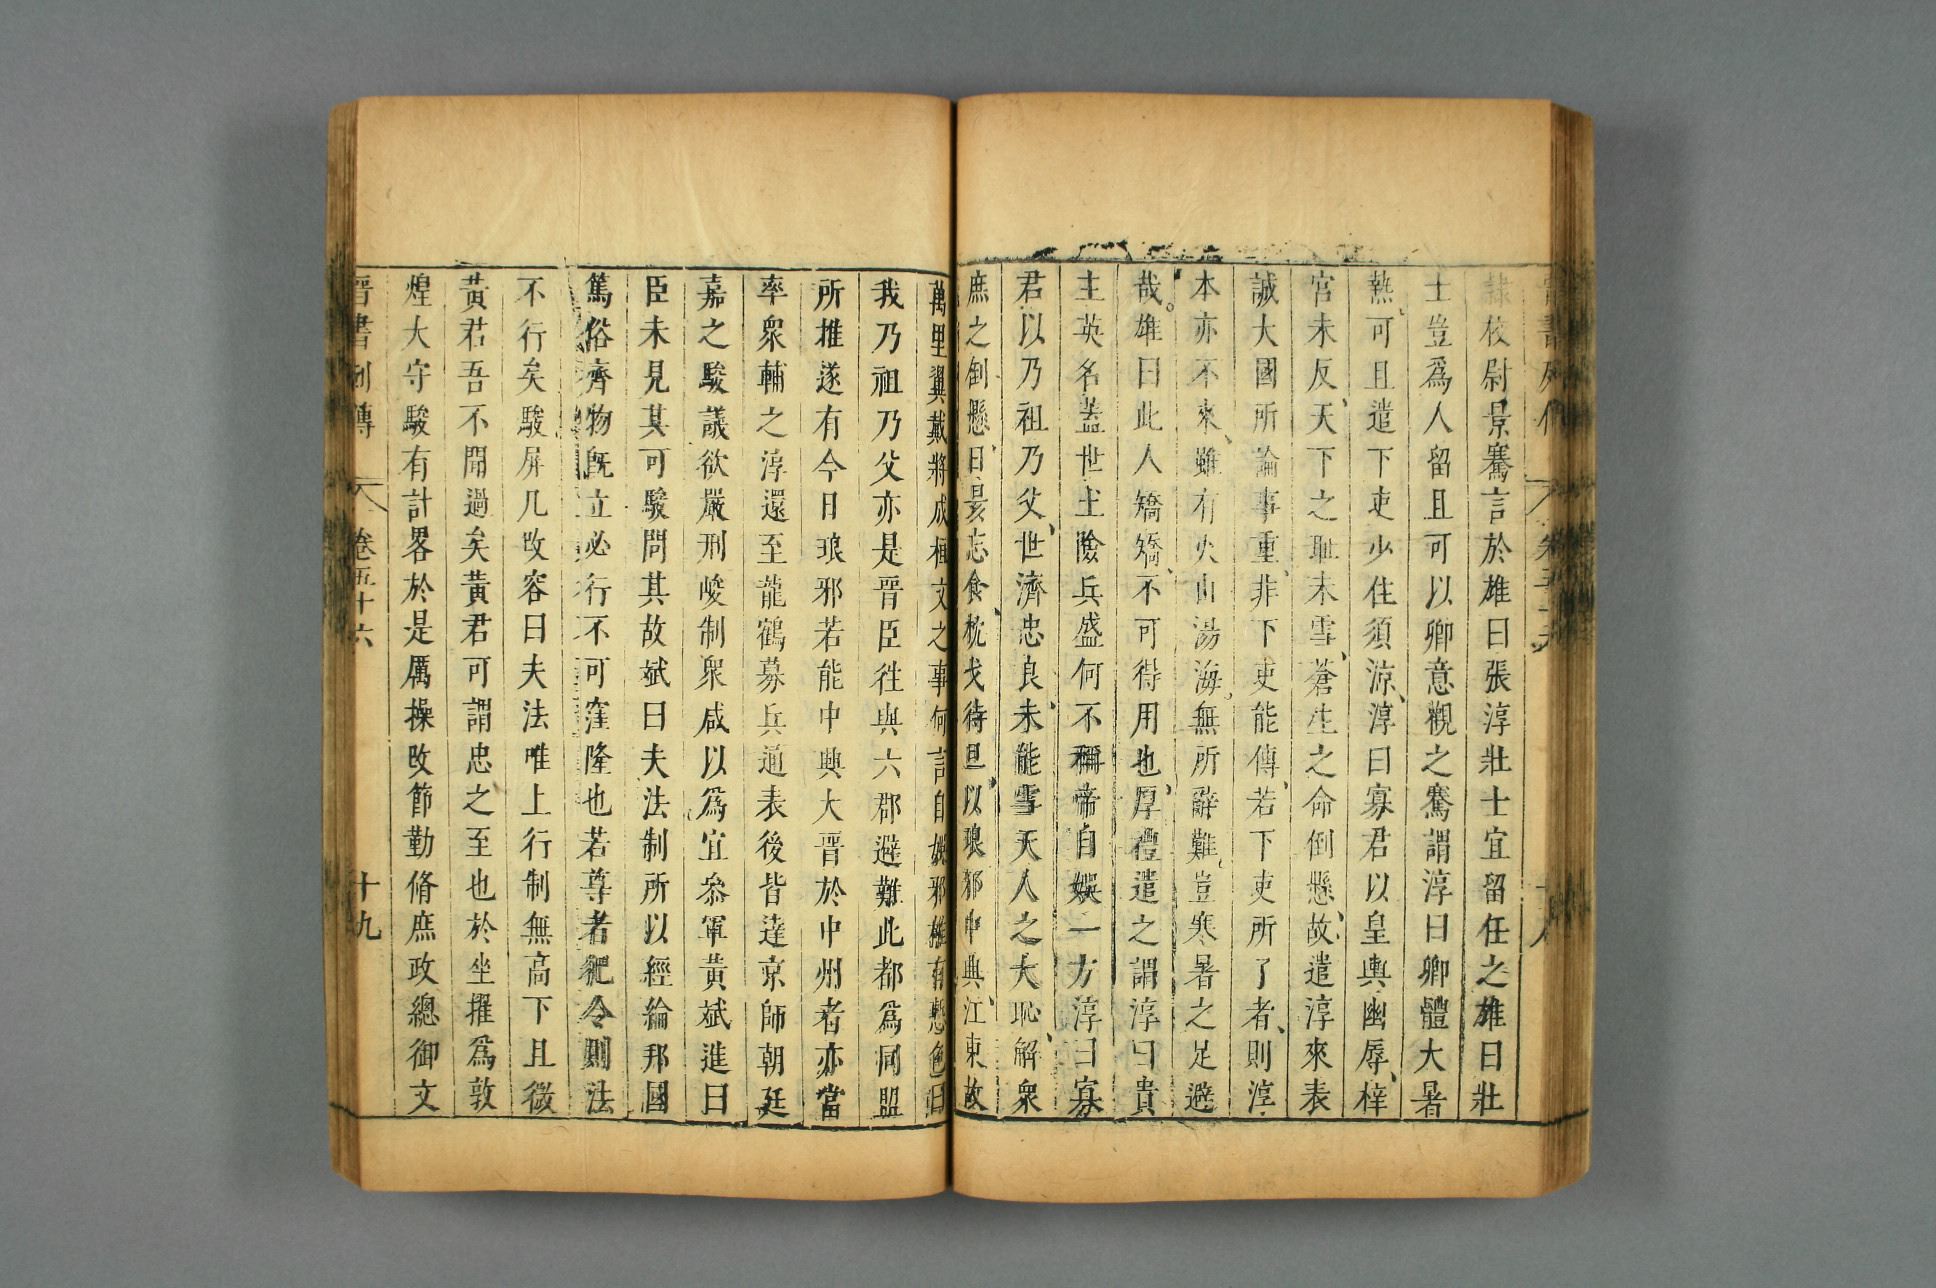 隸校尉景騫言於雄曰張淳壯士宜留任之雄曰壯
士豈爲人留且可以卿意觀之騫謂淳曰卿體大暑
熱可且遣下吏少住須涼淳曰寡君以皇輿幽辱梓
宮未反天下之耻未雪蒼生之命倒懸故遣淳來表
誠大國所論事重非下吏能傳若下吏所了者則淳
本亦不來雖有火山湯海無所辭難豈寒暑之足避
哉雄曰此人矯矯不可得用也厚禮遣之謂淳曰貴
主英名蓋世土險兵盛何不稱帝自娛一方淳曰寡
君以乃祖乃父世濟忠良未能雪天人之大恥解衆
庶之倒懸日昃忘食枕戈待旦以琅邪中興江東故
萬里翼戴將成桓文之事何言自娛邪雄有慙色曰
我乃祖乃父亦是晉臣往與六郡避難此都爲同盟
所推遂有今日琅邪若能中興大晉於中州者亦當
率衆輔之淳還至龍鶴募兵通表後皆達京師朝廷
嘉之駿議欲嚴刑峻制衆咸以爲宜叅軍黃斌進曰
臣未見其可駿問其故斌曰夫法制所以經綸邦國
篤俗齊物旣立必行不可窪隆也若尊者犯令則法
不行矣駿屏几改容曰夫法唯上行制無高下且微
黃君吾不聞過矣黃君可謂忠之至也於坐擢爲敦
煌大守駿有計畧於是厲操改節勤脩庶政總御文
晉書列傳 卷五十六 十九